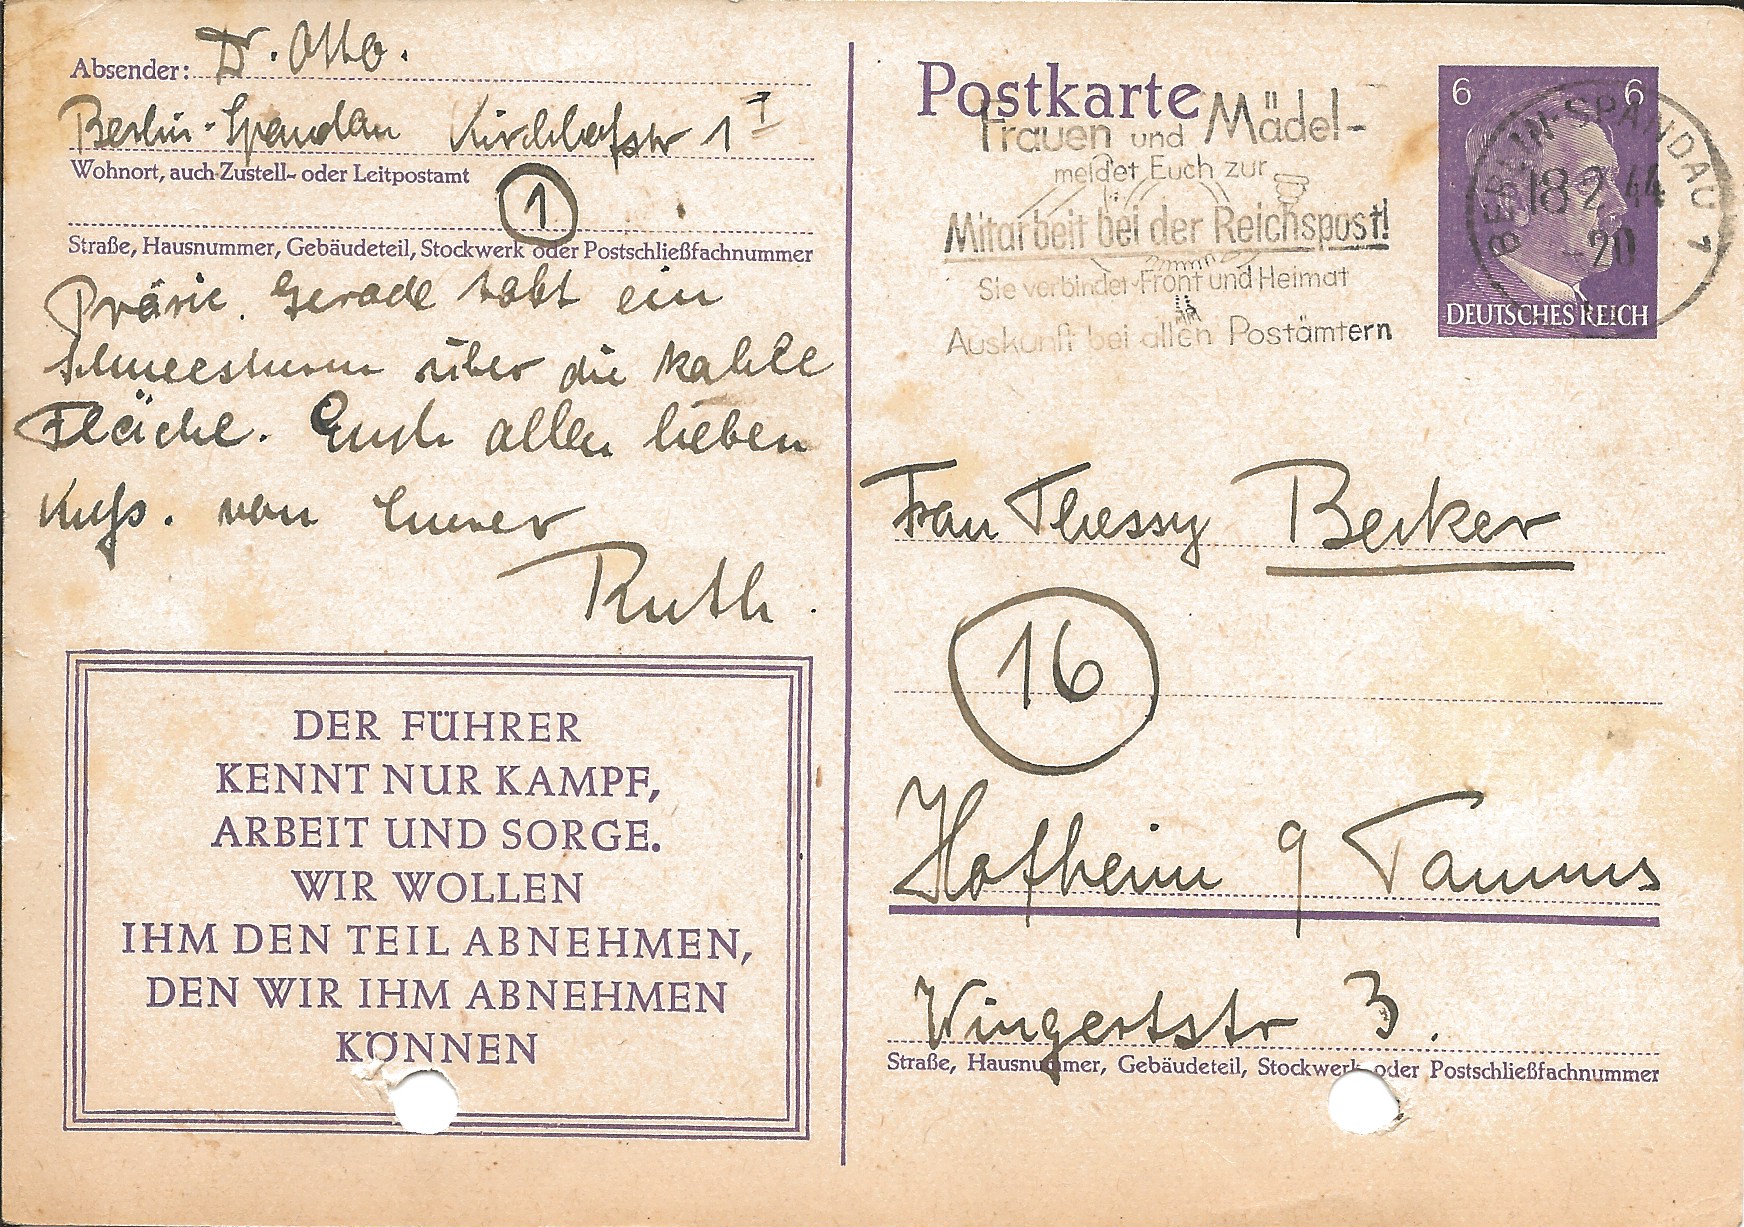 Absender: Dr. Otto.
Berlin-Spandau Kirchhofstr 1 I
Wohnort, auch Zustell- oder Leitpostamt
1
Straße, Hausnummer, Gebäudeteil, Stockwerk oder Postschließfachnummer
Prärie. Gerade tobt ein
Schneesturm über die kahle
Fläche. Euch allen lieben
Kuß. von Eurer
Ruth.
DER FÜHRER
KENNT NUR KAMPF,
ARBEIT UND SORGE.
WIR WOLLEN
IHM DEN TEIL ABNEHMEN,
DEN WIR IHM ABNEHMEN
KÖNNEN
Postkarte
Frauen und Mädel-
meldet Euch zur
Mitarbeit bei der Reichspost!
Sie verbindet Front und Heimat
Auskunft bei allen Postämtern
6 6
DEUTSCHES REICH
BERLIN-SPANDAU 1
18 2 44
-20
Frau Thessy Becker
16
Hofheim a Taunus
Wingertstr 3.
Straße, Hausnummer, Gebäudeteil, Stockwerk oder Postschließfachnummer